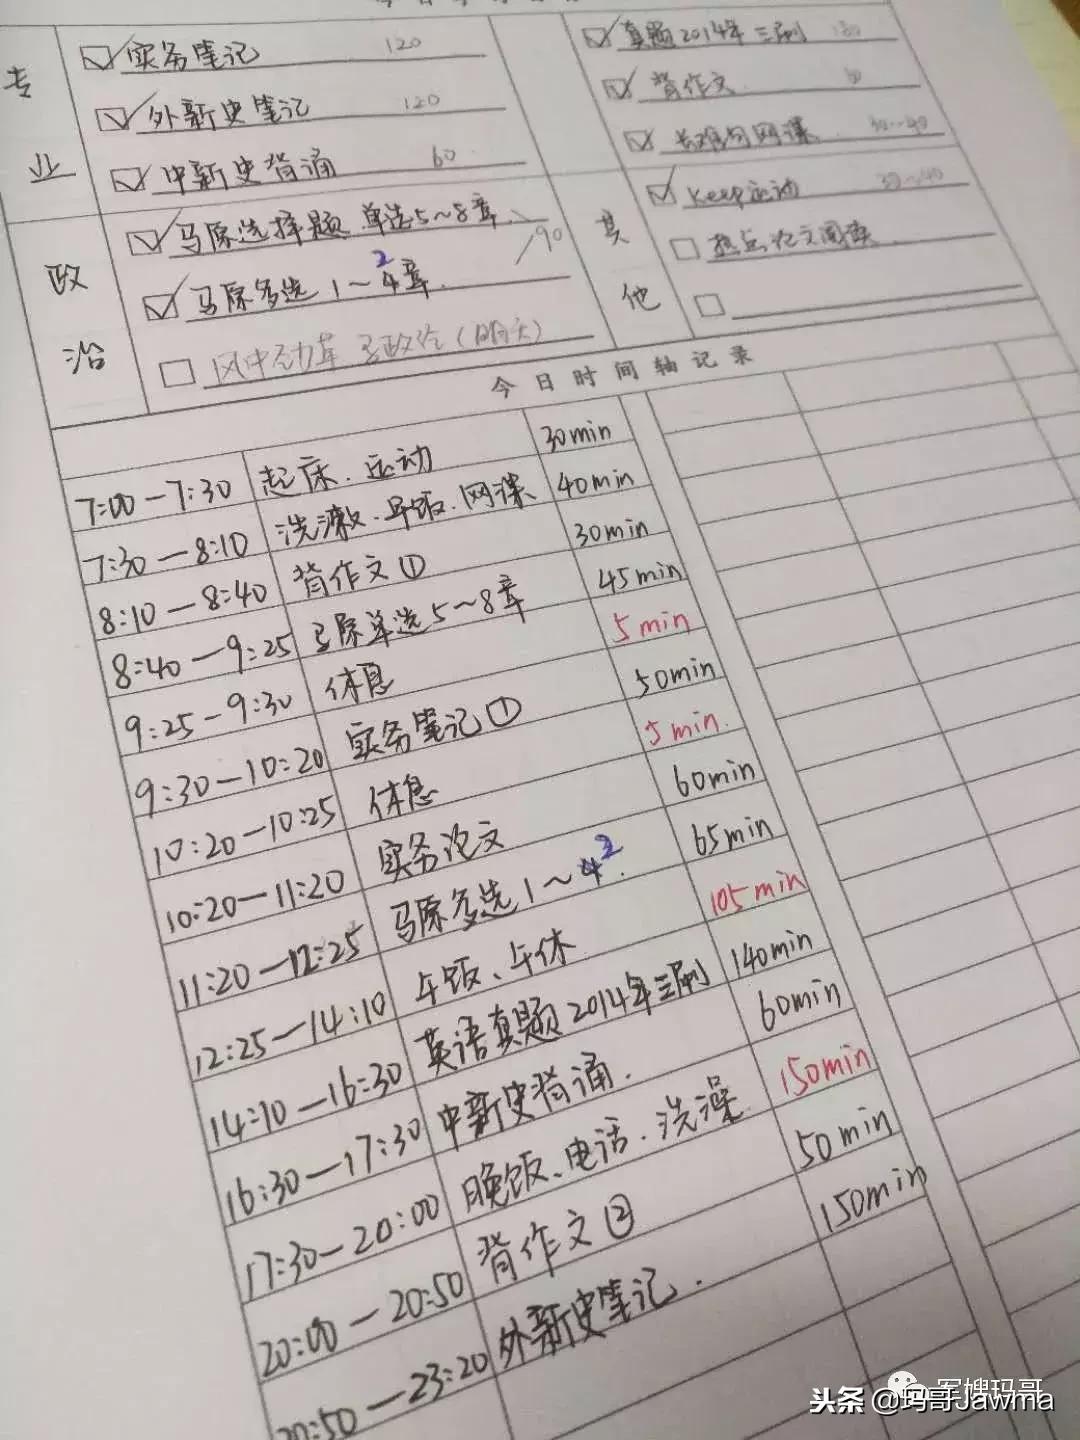 专业
实务笔记 120
外新史笔记 120
中新史背诵 60
政治
马原选择题 单选5~8章
马原多选1~2 4章. 90
风中劲草 马政经(明天)
真题2014年 三刷
背作文
长难句网课 30~40
其他
Keep运动 30~40
热点论文阅读
今日时间轴记录
7:00—7:30 起床、运动 30min
7:30—8:10 洗漱、早饭、网课 40min
8:10—8:40 背作文① 30min
8:40—9:25 马原单选5~8章 45min
9:25-9:30 休息 5min
9:30—10:20 实务笔记① 50min
10:20—10:25 休息 5min.
10:20—11:20 实务论文 60min
11:20—12:25 马原多选1~4 2. 65min
12:25—14:10 午饭、午休 105min
14:10—16:30 英语真题2014年三刷 140min
16:30—17:30 中新史背诵. 60min
17:30—20:00 晚饭、电话、洗澡 150min
20:00—20:50 背作文② 50min
20:50—23:20 外新史笔记. 150min
军嫂玛哥
头条 @玛哥Jawma